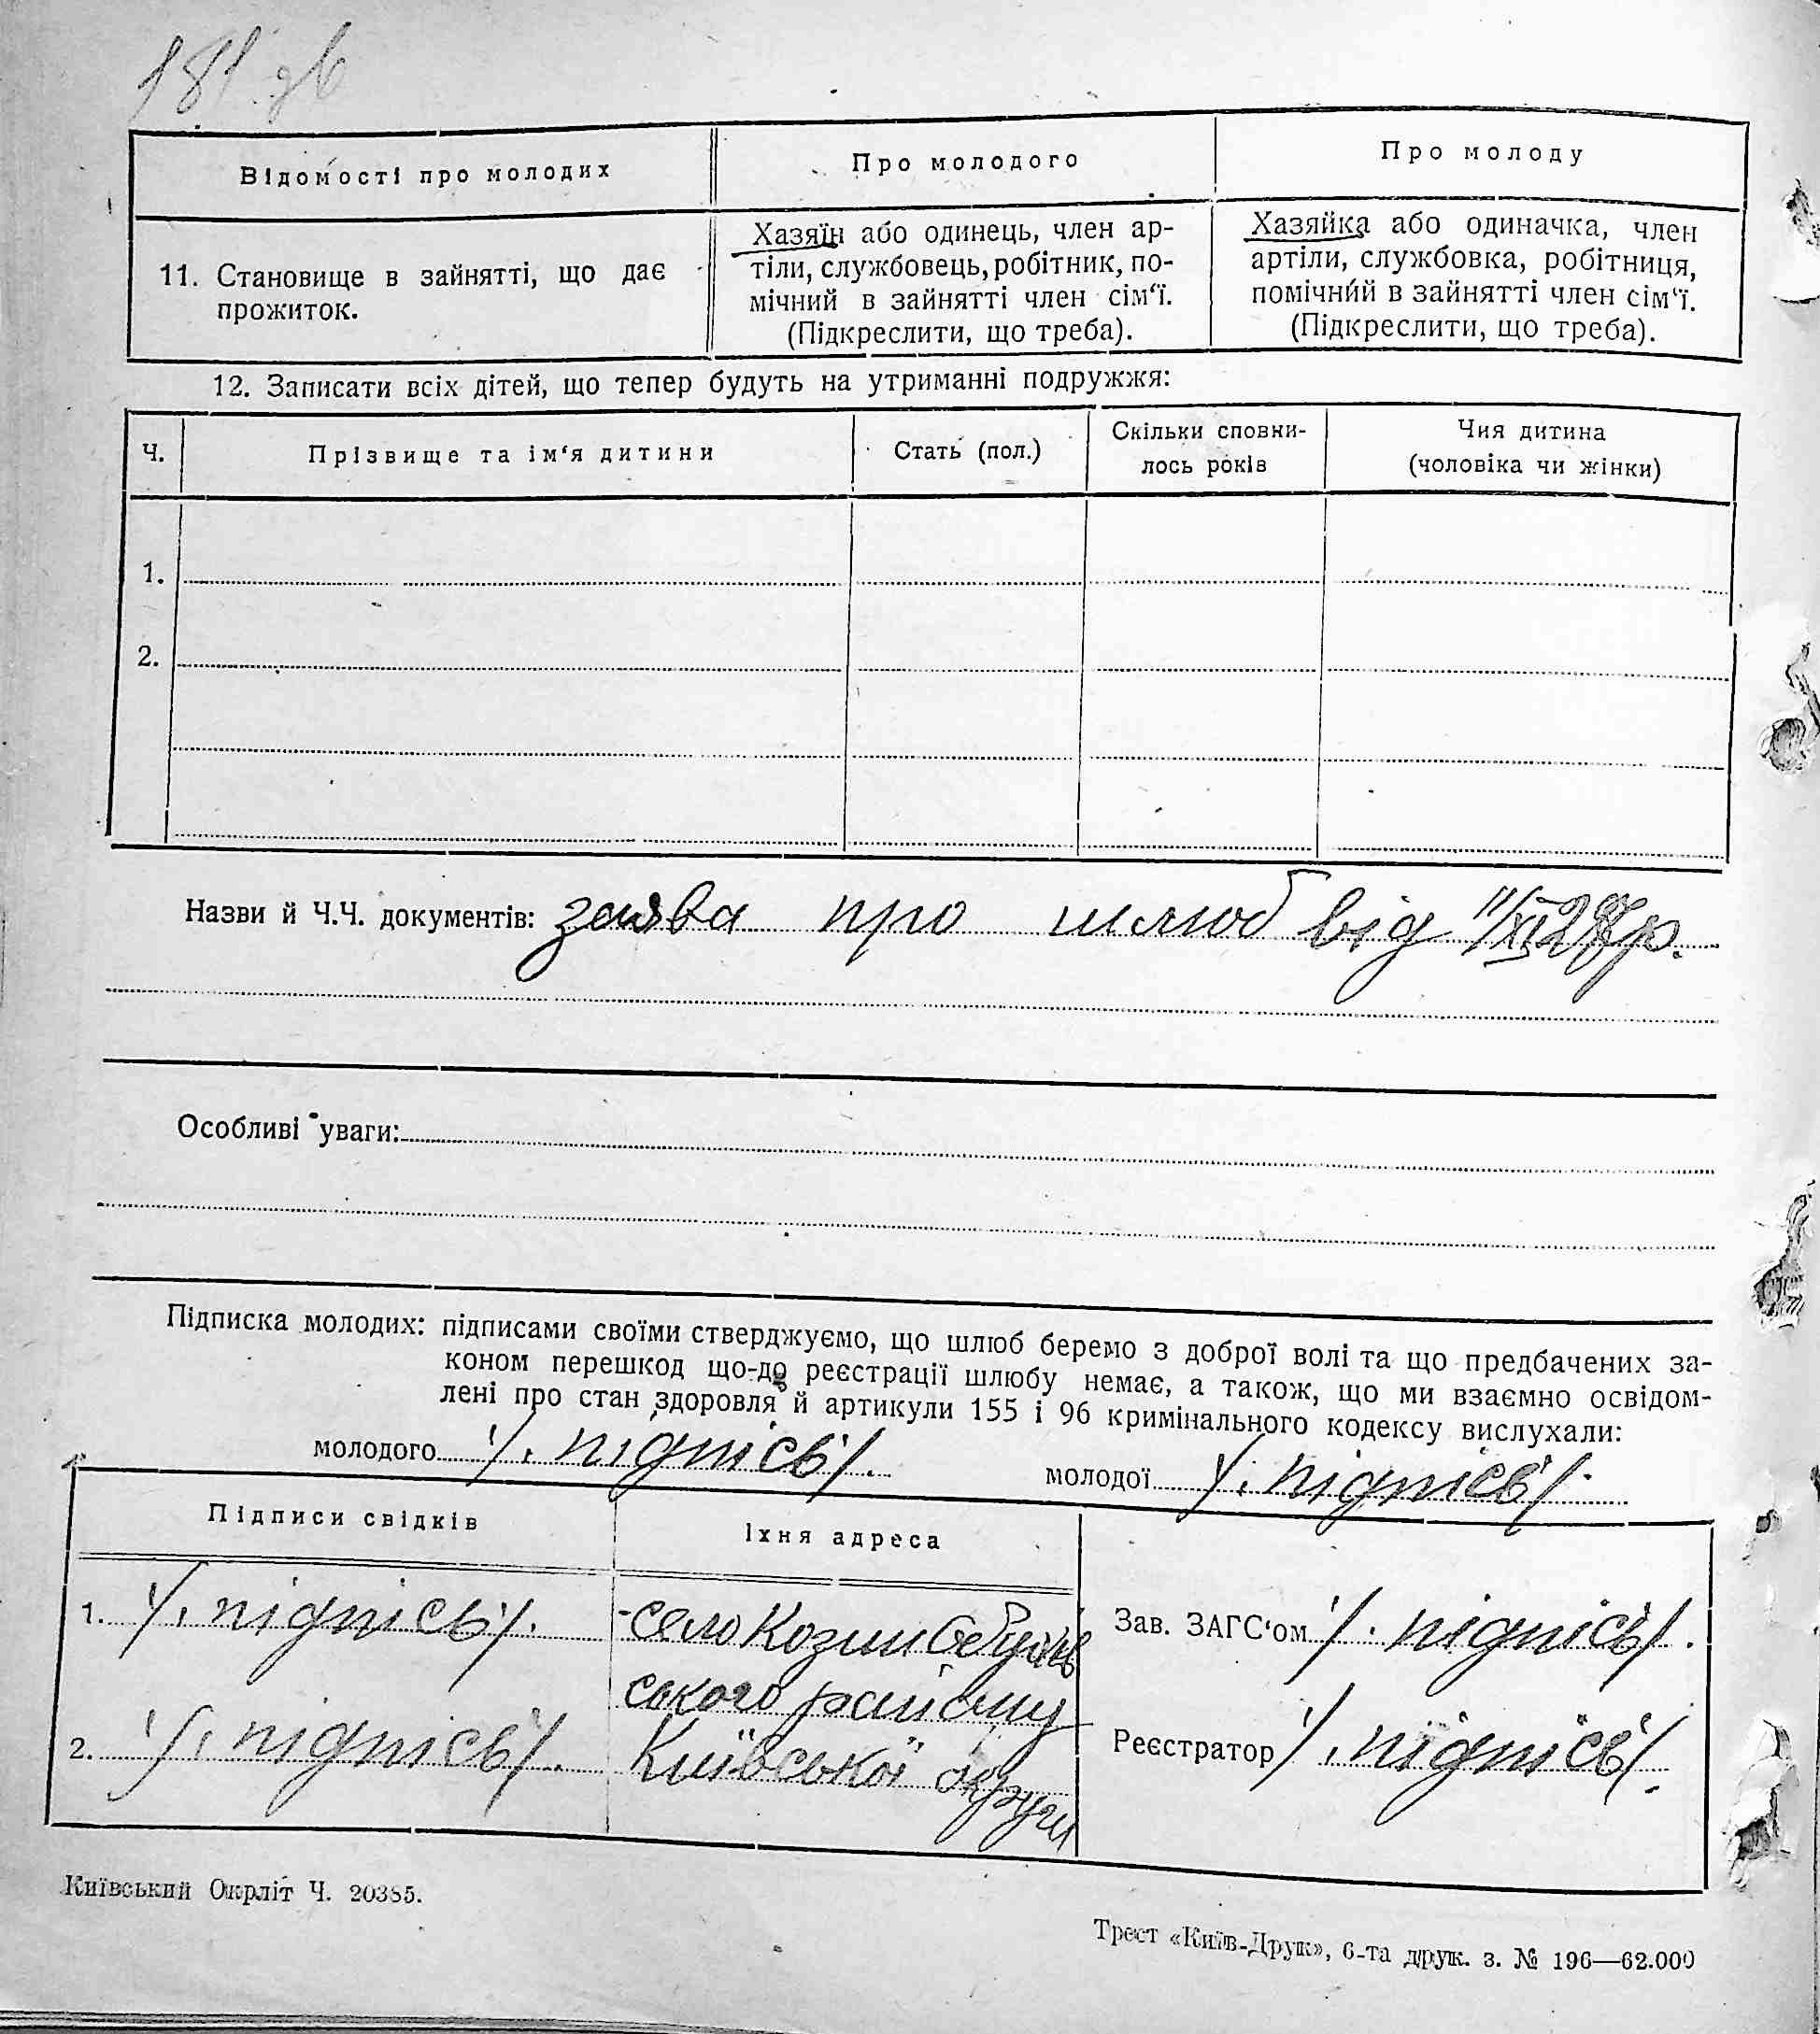 181 зв
Відомості про молодих
Про молодого
Про молоду
11. Становище в зайнятті, що дає
прожиток.
Хазяїн або одинець, член ар-
тіли, службовець, робітник, по-
мічний в зайнятті член сім‘ї.
(Підкреслити, що треба).
Хазяйка або одиначка, член
артіли, службовка, робітниця,
помічний в зайнятті член сім‘ї.
(Підкреслити, що треба).
12. Записати всіх дітей, що тепер будуть на утриманні подружжя:
Ч.
Прізвище та ім‘я дитини
Стать (пол.)
Скільки сповни-
лось років
Чия дитина
(чоловіка чи жінки)
1.
2.
Назви й Ч.Ч. документів: заява про шлюб від 11/XI 28р.
Особливі уваги:
Підписка молодих: підписами своїми стверджуємо, що шлюб беремо з доброї волі та що предбачених за-
коном перешкод що-до реєстрації шлюбу немає, а також, що ми взаємно освідом-
лені про стан здоровля й артикули 155 і 96 кримінального кодексу вислухали:
молодого /підпісь/.
молодої /підпісь/.
Підписи свідків
Їхня адреса
1. /підпісь/.
2. /підпісь/.
село Козин Обухів
ського району
Київської округи
Зав. ЗАГС‘ом /підпісь/.
Реєстратор /підпісь/.
Київський Окрліт Ч. 20385.
Трест «Київ-Друк», 6-та друк. з. № 196—62.000